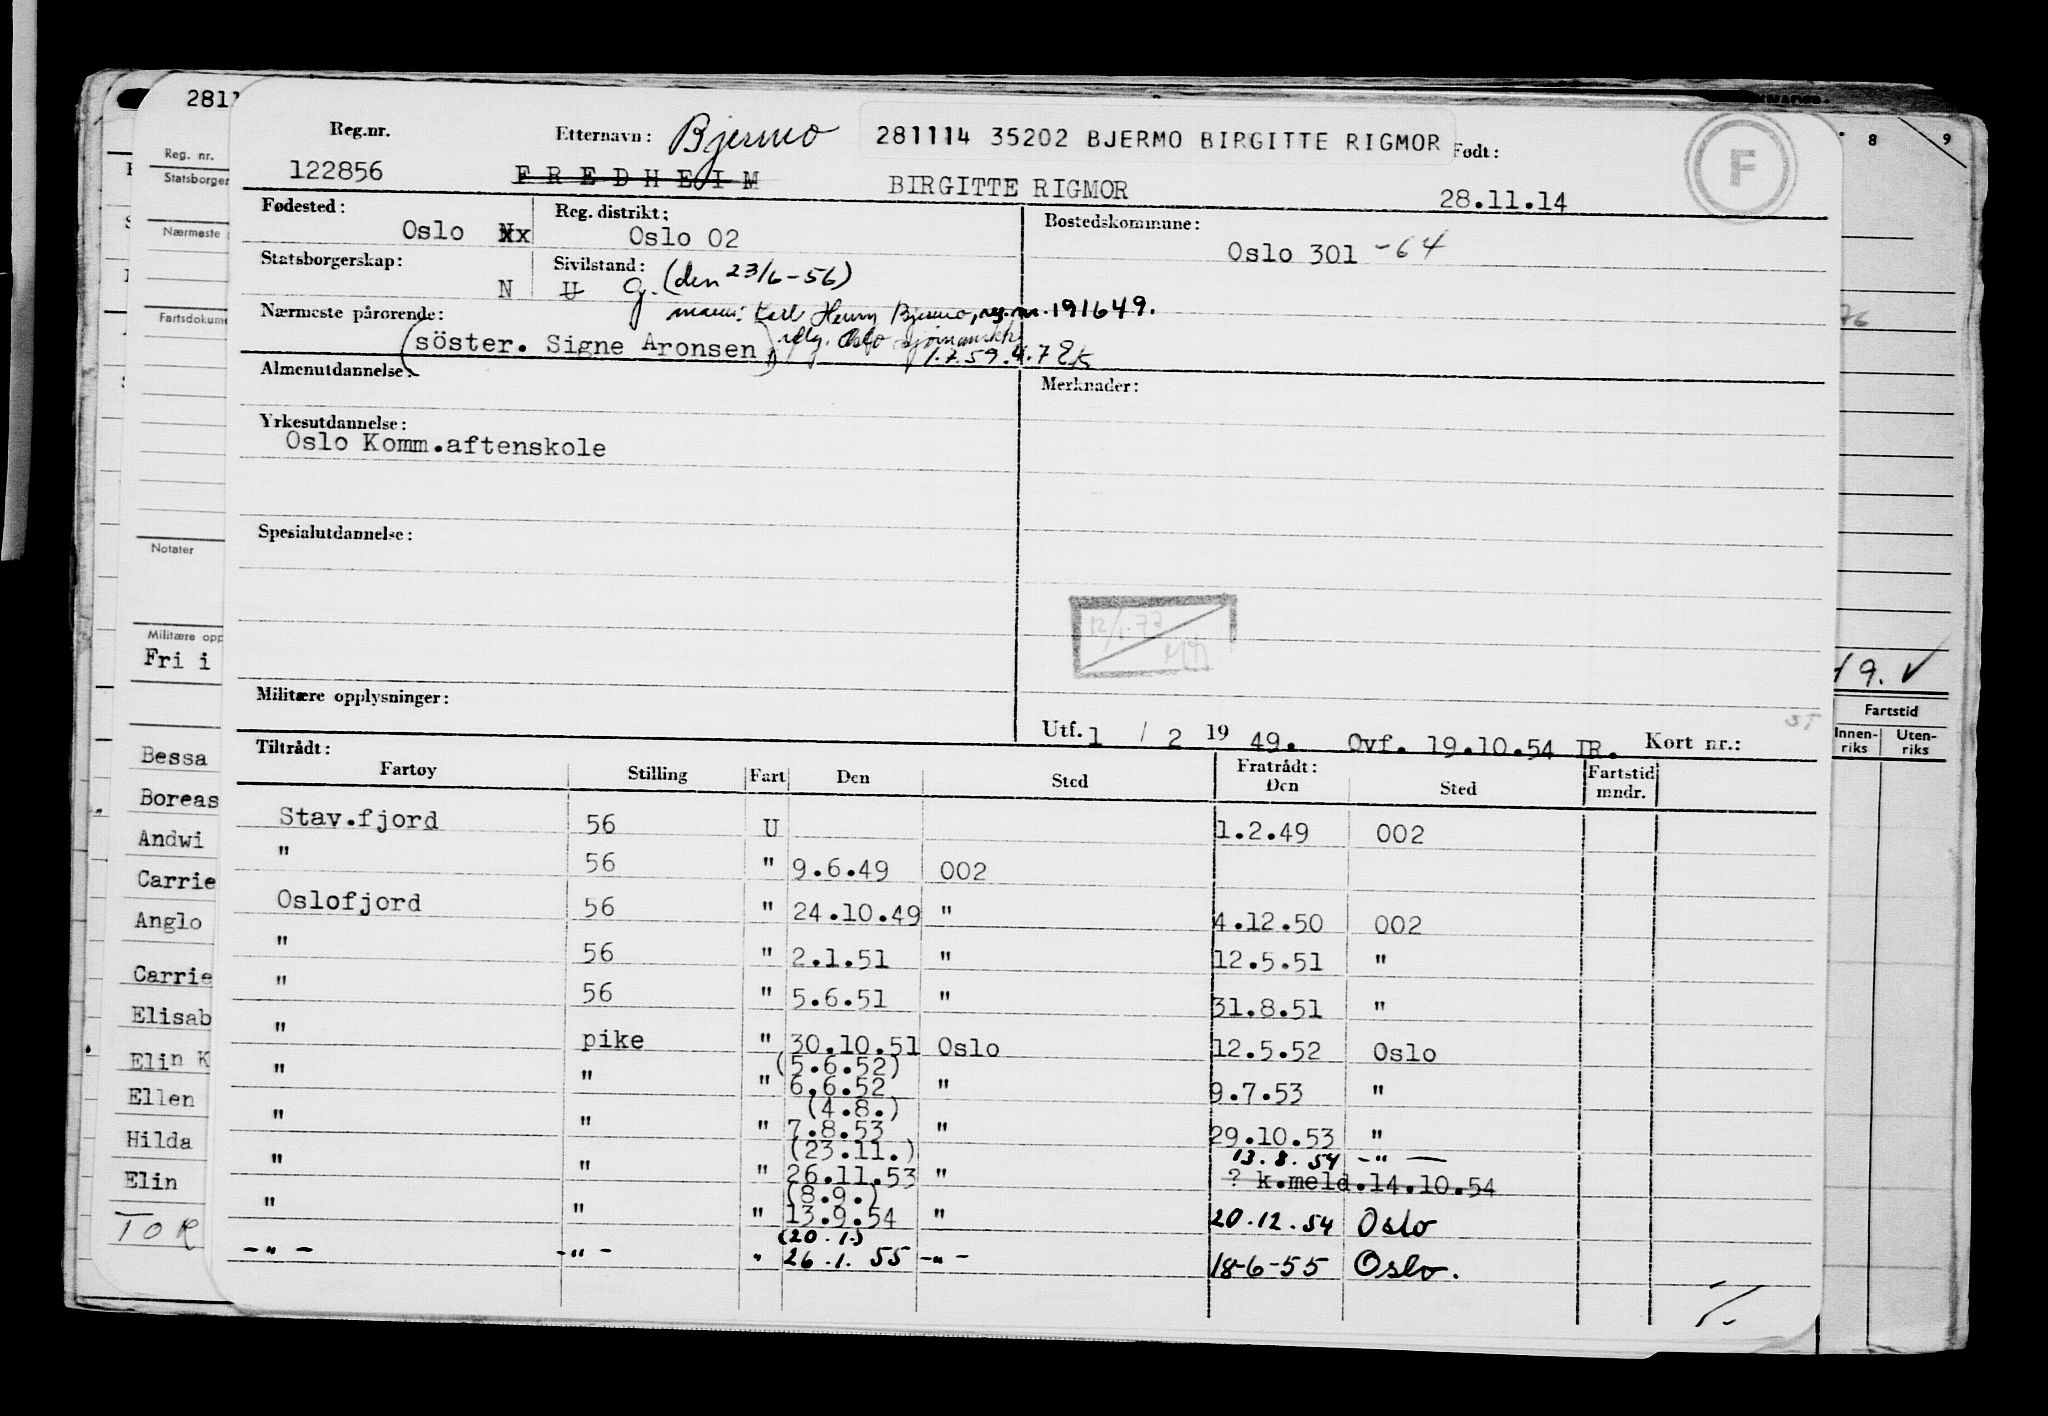 2811
Reg.nr.
Etternavn:
Bjermo
281114 35202 BJERMO BIRGITTE RIGMOR
Født:
F
8
9
122856
FREDHEIM
BIRGITTE RIGMOR
28.11.14
Reg. nr.
Statsborger
Nærmeste
Fartsdokume
Notater
Militære opp
Fri i
Fødested:
Oslo
Reg. distrikt:
Oslo 02
Bostedskommune:
Oslo 301 -64
Statsborgerskap:
N
Sivilstand:
U G. (den 23/6-56)
Nærmeste pårørende:
mann: Karl Henry Bjermo, reg.nr. 191649.
(söster. Signe Aronsen)
1.7.59.
Almenutdannelse:
Merknader:
Yrkesutdannelse:
Oslo Komm.aftenskole
Spesialutdannelse:
12/1.77
Militære opplysninger:
Utf. 1 / 2 19 49. Ovf. 19.10.54 IR. Kort nr.:
19. ✓
Fartstid
Innen-
riks
Uten-
riks
Tiltrådt:
Fratrådt:
Fartøy Stilling Fart Den Sted Den Sted Fartstid mndr.
Stav.fjord 56 U 1.2.49 002
" 56 " 9.6.49 002
Oslofjord 56 " 24.10.49 " 4.12.50 002
" 56 " 2.1.51 " 12.5.51 "
" 56 " 5.6.51 " 31.8.51 "
" pike " 30.10.51 Oslo 12.5.52 Oslo
(5.6.52)
" " " 6.6.52 " 9.7.53 "
(4.8.)
" " " 7.8.53 " 29.10.53 "
(23.11.) 13.8.54 -"-
" " " 26.11.53 " ? k.meld.14.10.54
(8.9.)
" " " 13.9.54 " 20.12.54 Oslo
(20.1.)
-"- -"- " 26.1.55 -"- 18-6-55 Oslo.
Bessa
Boreas
Andwi
Carrie
Anglo
Carrie
Elisab
Elin K
Ellen
Hilda
Elin
TOR